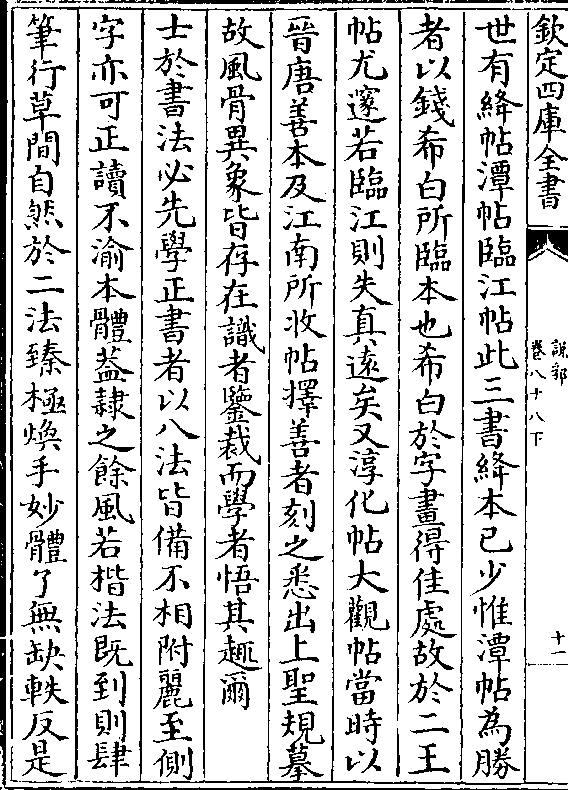 欽定四庫全書
說郛
卷八十八下
十一
世有絳帖潭帖臨江帖此三書絳本已少惟潭帖為勝
者以錢希白所臨本也希白於字畫得佳處故於二王
帖尤邃若臨江則失真遠矣又淳化帖大觀帖當時以
晉唐善本及江南所收帖擇善者刻之悉出上聖規摹
故風骨異象皆存在識者鑒裁而學者悟其趣爾
士於書法必先學正書者以八法皆備不相附麗至側
字亦可正讀不渝本體蓋隷之餘風若楷法既到則肆
筆行草間自然於二法臻極煥手妙體了無缺軼反是